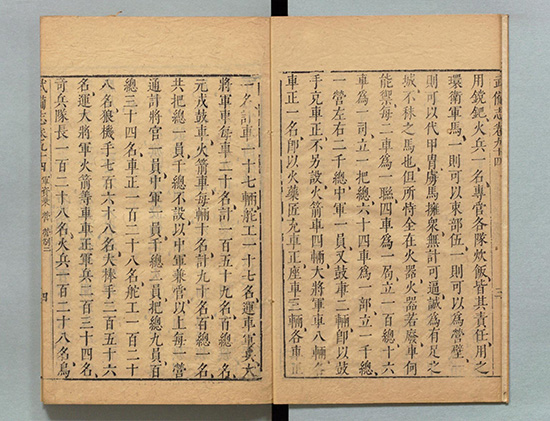 武備志卷九十四 三
用鎲鈀火兵一名專管各隊炊飯皆其責任用之
環衛軍馬一則可以束部伍一則可以為營壁一
則可以代甲冑虜馬擁衆無計可逼誠為有足之
城不秣之馬也但所恃全在火器火器若廢車何
能禦每二車為一聯四車為一局立一百總十六
車為一司立一把總六十四車為一部立一千總
一營左右二千總中軍一員又鼓車二輛即以鼓
手充車正不另設火箭車四輛大將軍車八輛各
車正一名即以火藥匠充車正座車三輛各車正
一名計車一十七輛舵工一十七名運車軍兵大
將軍車每車二十名計一百五十九名百總一名
元戎鼓車火箭車每輛十名計九十名百總一名
共把總一員千總不設以中軍兼管以上每一營
通計將官一員中軍一員千總二員把總九員百
總三十四名車正一百二十八名舵工一百二十
八名狼機手七百六十八名大棒手二百五十六
名運大將軍火箭等車車正軍兵二百三十四名
奇兵隊長一百二十八名火兵一百二十八名鳥
武備志卷九十四 軍資乘 營 營制三 四